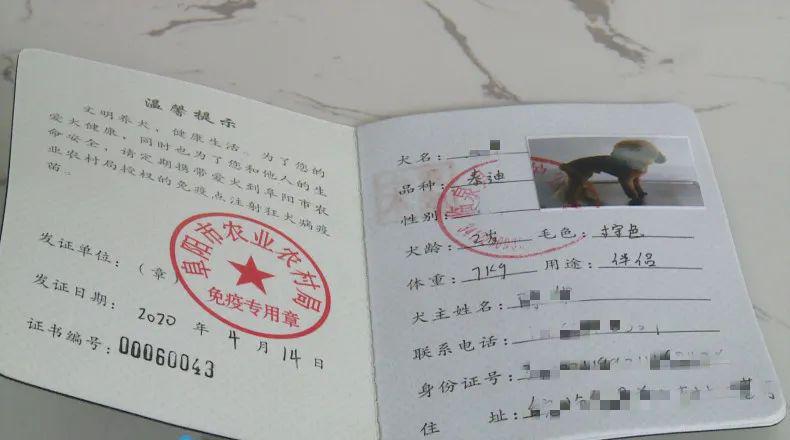 温馨提示
文明养犬，健康生活。为了您的
爱犬健康，同时也为了您和他人的生
命安全，请定期携带爱犬到阜阳市农
业农村局授权的免疫点注射狂犬病疫
苗。
发证单位：（章）
阜阳市农业农村局
免疫专用章
发证日期：2020 年 4 月 14 日
证书编号：00060043
犬名：
品种：泰迪
性别：
犬龄：2岁 毛色：棕色
体重：7kg 用途：伴侣
犬主姓名：
联系电话：
身份证号：
住 址：